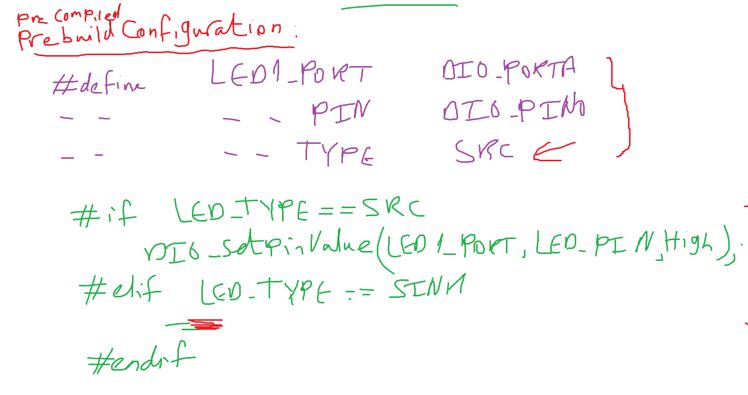 Pre Compiled
Prebuild Configuration:
#define LED1_PORT DIO_PORTA
-- -- PIN DIO_PIN0
-- -- TYPE SRC
#if LED_TYPE == SRC
DIO_setpinValue(LED1_PORT, LED_PIN, High);
#elif LED_TYPE == SINK
#endif